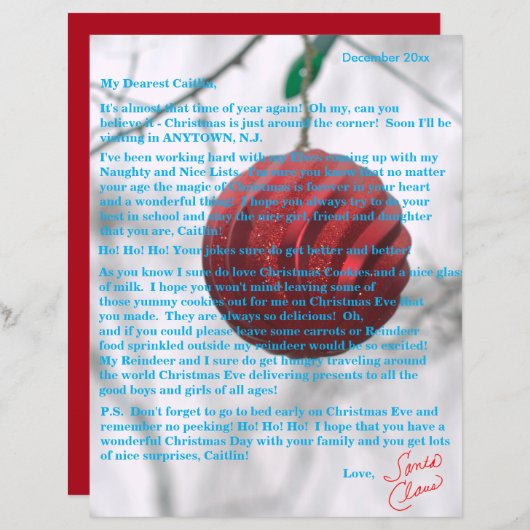 December 20xx
My Dearest Caitlin,
It's almost that time of year again! Oh my, can you
believe it - Christmas is just around the corner! Soon I'll be
visiting in ANYTOWN, N.J.
I've been working hard with my Elves coming up with my
Naughty and Nice Lists. I'm sure you know that no matter
your age the magic of Christmas is forever in your heart
and a wonderful thing! I hope you always try to do your
best in school and stay the nice girl, friend and daughter
that you are, Caitlin!
Ho! Ho! Ho! Your jokes sure do get better and better!
As you know I sure do love Christmas Cookies and a nice glass
of milk. I hope you won't mind leaving some of
those yummy cookies out for me on Christmas Eve that
you made. They are always so delicious! Oh,
and if you could please leave some carrots or Reindeer
food sprinkled outside my reindeer would be so excited!
My Reindeer and I sure do get hungry traveling around
the world Christmas Eve delivering presents to all the
good boys and girls of all ages!
P.S. Don't forget to go to bed early on Christmas Eve and
remember no peeking! Ho! Ho! Ho! I hope that you have a
wonderful Christmas Day with your family and you get lots
of nice surprises, Caitlin!
Love,
Santa
Claus